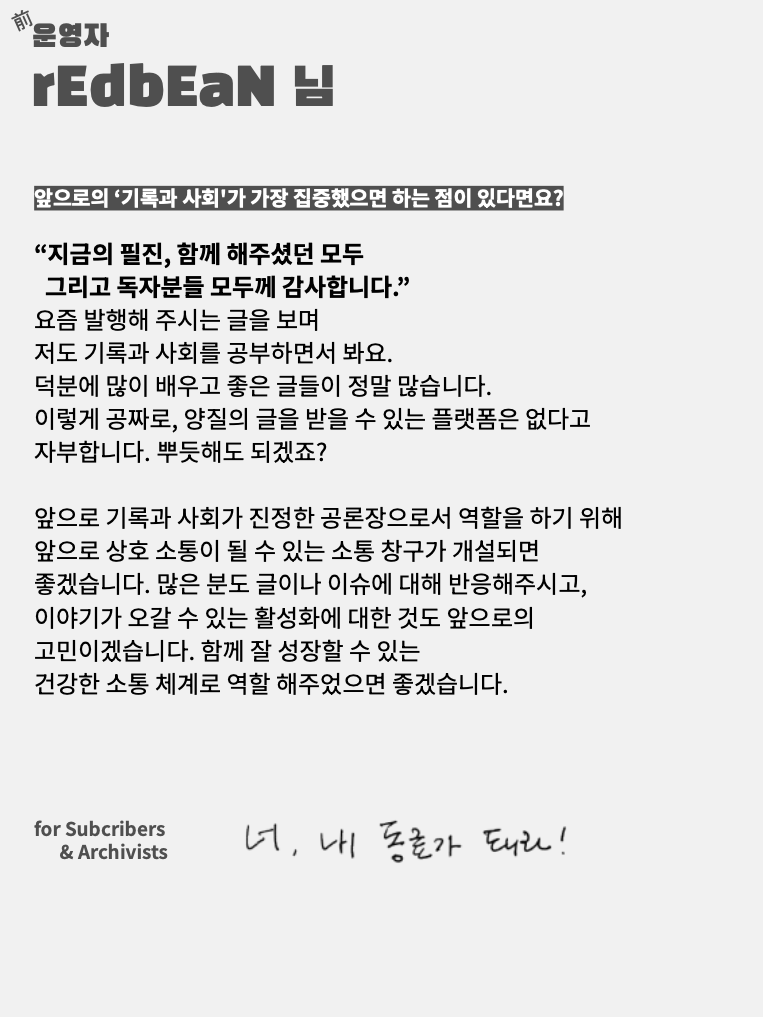 前
운영자
rEdbEaN 님
앞으로의 ‘기록과 사회'가 가장 집중했으면 하는 점이 있다면요?
“지금의 필진, 함께 해주셨던 모두
그리고 독자분들 모두께 감사합니다.”
요즘 발행해 주시는 글을 보며
저도 기록과 사회를 공부하면서 봐요.
덕분에 많이 배우고 좋은 글들이 정말 많습니다.
이렇게 공짜로, 양질의 글을 받을 수 있는 플랫폼은 없다고
자부합니다. 뿌듯해도 되겠죠?
앞으로 기록과 사회가 진정한 공론장으로서 역할을 하기 위해
앞으로 상호 소통이 될 수 있는 소통 창구가 개설되면
좋겠습니다. 많은 분도 글이나 이슈에 대해 반응해주시고,
이야기가 오갈 수 있는 활성화에 대한 것도 앞으로의
고민이겠습니다. 함께 잘 성장할 수 있는
건강한 소통 체계로 역할 해주었으면 좋겠습니다.
for Subcribers
& Archivists
너, 내 동료가 돼라!